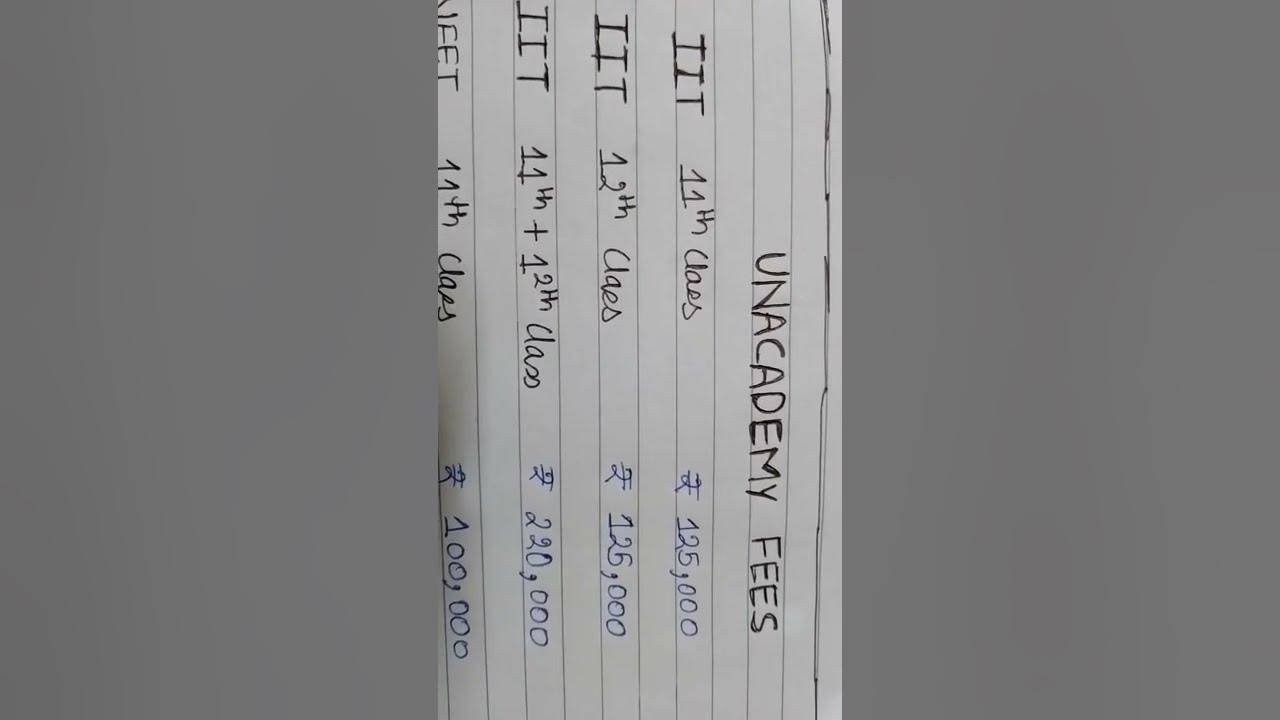 UNACADEMY FEES
IIT 11th Class ₹ 125,000
IIT 12th Class ₹ 125,000
IIT 11th + 12th Class ₹ 220,000
NEET 11th Class ₹ 100,000